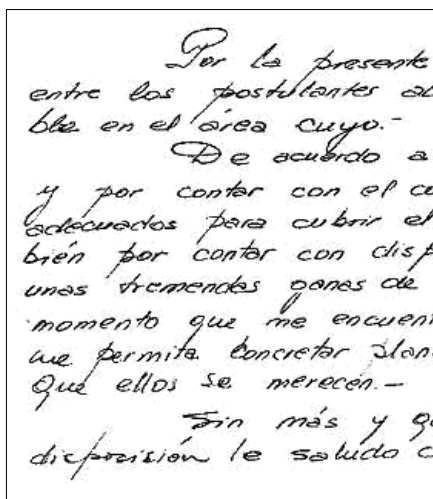 Por la presente
entre los postulantes
ble en el área cuyo.-
De acuerdo a
y por contar con el
adecuados para cubrir el
bién por contar con
unas tremendas ganas de
momento que me
me permita concretar
Que ellos se merecen.-
Sin más y
disposición le saludo